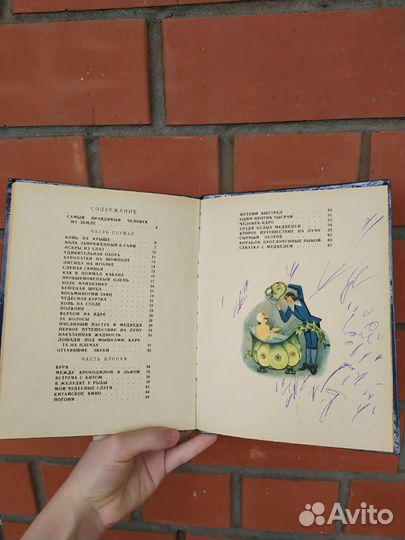 СОДЕРЖАНИЕ
САМЫЙ ПРАВДИВЫЙ ЧЕЛОВЕК
НА ЗЕМЛЕ 4
ЧАСТЬ ПЕРВАЯ
КОНЬ НА КРЫШЕ 6
ВОЛК, ЗАПРЯЖЕННЫЙ В САНИ 7
ИСКРЫ ИЗ ГЛАЗ
УДИВИТЕЛЬНАЯ ОХОТА
КУРОПАТКИ НА ШОМПОЛЕ
ЛИСИЦА НА ИГОЛКЕ
СЛЕПАЯ СВИНЬЯ
КАК Я ПОЙМАЛ КАБАНА
НЕОБЫКНОВЕННЫЙ ОЛЕНЬ
ВОЛК НАИЗНАНКУ
БЕШЕНАЯ ШУБА
ВОСЬМИНОГИЙ ЗАЯЦ
ЧУДЕСНАЯ КУРТКА
КОНЬ НА СТОЛЕ
ПОЛКОНЯ
ВЕРХОМ НА ЯДРЕ
ЗА ВОЛОСЫ
ПЧЕЛИНЫЙ ПАСТУХ И МЕДВЕДИ
ПЕРВОЕ ПУТЕШЕСТВИЕ НА ЛУНУ
НАКАЗАННАЯ ЖАДНОСТЬ
ЛОШАДИ ПОД МЫШКАМИ, КАРЕ-
ТА НА ПЛЕЧАХ
ОТТАЯВШИЕ ЗВУКИ
ЧАСТЬ ВТОРАЯ
БУРЯ 34
МЕЖДУ КРОКОДИЛОМ И ЛЬВОМ 35
ВСТРЕЧА С КИТОМ
В ЖЕЛУДКЕ У РЫБЫ
МОИ ЧУДЕСНЫЕ СЛУГИ
КИТАЙСКОЕ ВИНО
ПОГОНЯ
МЕТКИЙ ВЫСТРЕЛ
ОДИН ПРОТИВ ТЫСЯЧИ
ЧЕЛОВЕК-ЯДРО
СРЕДИ БЕЛЫХ МЕДВЕДЕЙ
ВТОРОЕ ПУТЕШЕСТВИЕ НА ЛУНУ
СЫРНЫЙ ОСТРОВ
КОРАБЛИ, ПРОГЛОЧЕННЫЕ РЫБОЙ
СХВАТКА С МЕДВЕДЕМ 67
Avito